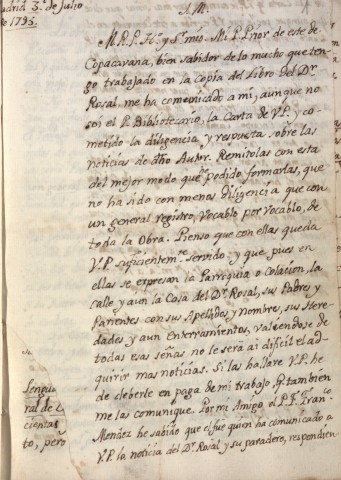 Madrid 3. de Julio
de 1795.
A.M.
M. R. P. Hº y Sr mio. Mi P. Prior de este de
Copacavana, bien sabidor de lo mucho que ten-
go trabajado en la Copia del Libro del Dr.
Rosal, me ha comunicado a mi, aunque no
soi el P. Bibliotecario, la Carta de V.P. y co-
metido la diligencia, y respuesta sobre las
noticias de dho Autor. Remitolas con esta
del mejor modo que he podido formarlas, que
no ha sido con menos diligencia que con
un general registro, Vocablo por Vocablo, de
toda la Obra. Pienso que con ellas queda
V.P. suficientemte servido; y que pues en
ellas se expresan la Parroquia o Colacion, la
calle y aun la Casa del Dr. Rosal, sus Padres y
Parientes con sus Apellidos y nombres, sus Here-
dades y aun Enterramientos, valiendose de
todas esas señas no le será ai dificil el ad-
quirir mas noticias. Si las hallare V.P. he
de deberle en paga de mi trabajo, q. tambien
me las comunique. Por mi Amigo el P. F. Fran.co
Mendez he sabido que el fue quien ha comunicado a
V.P. la noticia del Dr. Rosal y su paradero, respondien
Lengua
ral de
cientas
to, pero